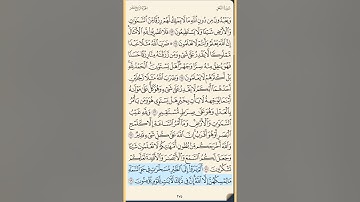 الجزء الرابع عشر سورة النحل
وَيَعْبُدُونَ مِن دُونِ ٱللَّهِ مَا لَا يَمْلِكُ لَهُمْ رِزْقًا مِّنَ ٱلسَّمَٰوَٰتِ
وَٱلْأَرْضِ شَيْـًٔا وَلَا يَسْتَطِيعُونَ ٧٣ فَلَا تَضْرِبُوا۟ لِلَّهِ ٱلْأَمْثَالَ
إِنَّ ٱللَّهَ يَعْلَمُ وَأَنتُمْ لَا تَعْلَمُونَ ٧٤ ۞ ضَرَبَ ٱللَّهُ مَثَلًا عَبْدًا
مَّمْلُوكًا لَّا يَقْدِرُ عَلَىٰ شَىْءٍ وَمَن رَّزَقْنَٰهُ مِنَّا رِزْقًا حَسَنًا
فَهُوَ يُنفِقُ مِنْهُ سِرًّا وَجَهْرًا هَلْ يَسْتَوُۥنَ ٱلْحَمْدُ لِلَّهِ
بَلْ أَكْثَرُهُمْ لَا يَعْلَمُونَ ٧٥ وَضَرَبَ ٱللَّهُ مَثَلًا رَّجُلَيْنِ
أَحَدُهُمَآ أَبْكَمُ لَا يَقْدِرُ عَلَىٰ شَىْءٍ وَهُوَ كَلٌّ عَلَىٰ مَوْلَىٰهُ
أَيْنَمَا يُوَجِّههُّ لَا يَأْتِ بِخَيْرٍ هَلْ يَسْتَوِى هُوَ وَمَن يَأْمُرُ
بِٱلْعَدْلِ وَهُوَ عَلَىٰ صِرَٰطٍ مُّسْتَقِيمٍ ٧٦ وَلِلَّهِ غَيْبُ
ٱلسَّمَٰوَٰتِ وَٱلْأَرْضِ وَمَآ أَمْرُ ٱلسَّاعَةِ إِلَّا كَلَمْحِ
ٱلْبَصَرِ أَوْ هُوَ أَقْرَبُ إِنَّ ٱللَّهَ عَلَىٰ كُلِّ شَىْءٍ قَدِيرٌ ٧٧
وَٱللَّهُ أَخْرَجَكُم مِّنۢ بُطُونِ أُمَّهَٰتِكُمْ لَا تَعْلَمُونَ شَيْـًٔا
وَجَعَلَ لَكُمُ ٱلسَّمْعَ وَٱلْأَبْصَٰرَ وَٱلْأَفْـِٔدَةَ لَعَلَّكُمْ
تَشْكُرُونَ ٧٨ أَلَمْ يَرَوْا۟ إِلَى ٱلطَّيْرِ مُسَخَّرَٰتٍ فِى جَوِّ ٱلسَّمَآءِ
مَا يُمْسِكُهُنَّ إِلَّا ٱللَّهُ إِنَّ فِى ذَٰلِكَ لَءَايَٰتٍ لِّقَوْمٍ يُؤْمِنُونَ ٧٩
٢٧٥